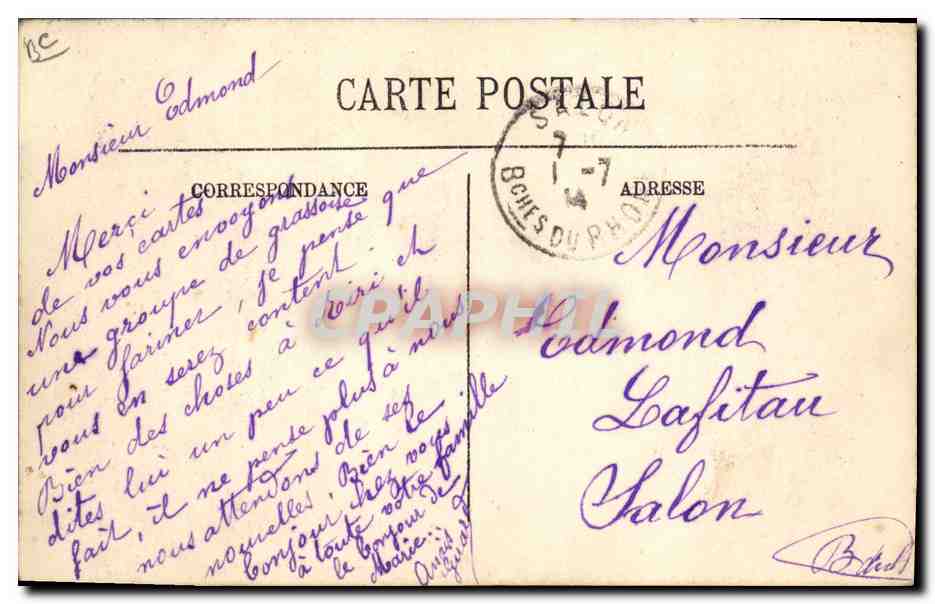 BC
CARTE POSTALE
CORRESPONDANCE
ADRESSE
SALON
7
1 -7
14
BCHES DU RHÔNE
Monsieur Edmond
Merçi
de vos cartes
Nous vous envoyond
une groupe de grassoise
pour fariner, je pense que
vous en serez content.
Bien des choses à Riri et
dites lui un peu ce qu'il
fait, il ne pense plus à nous
nous attendons de ses
nouvelles. Bien le
bonjour chez vous
à toute votre famille
le bonjour de
Marie
Monsieur
Edmond
Lafitau
Salon
CPAPHIL